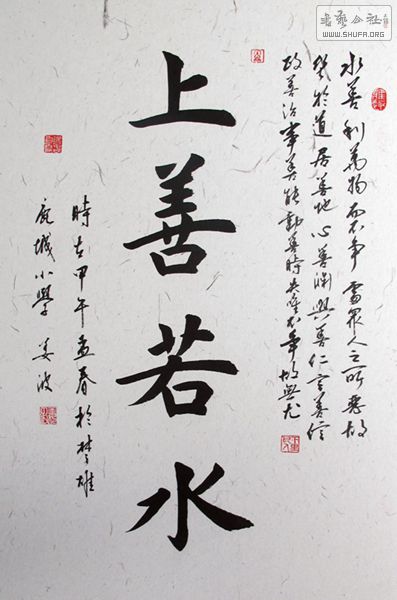 书艺公社
WWW.SHUFA.ORG
水善利萬物而不爭處眾人之所惡故
幾於道居善地心善淵與善仁言善信
政善治事善能動善時夫唯不爭故無尤
上善若水
時在甲午孟春於楚雄
鹿城小學 姜波